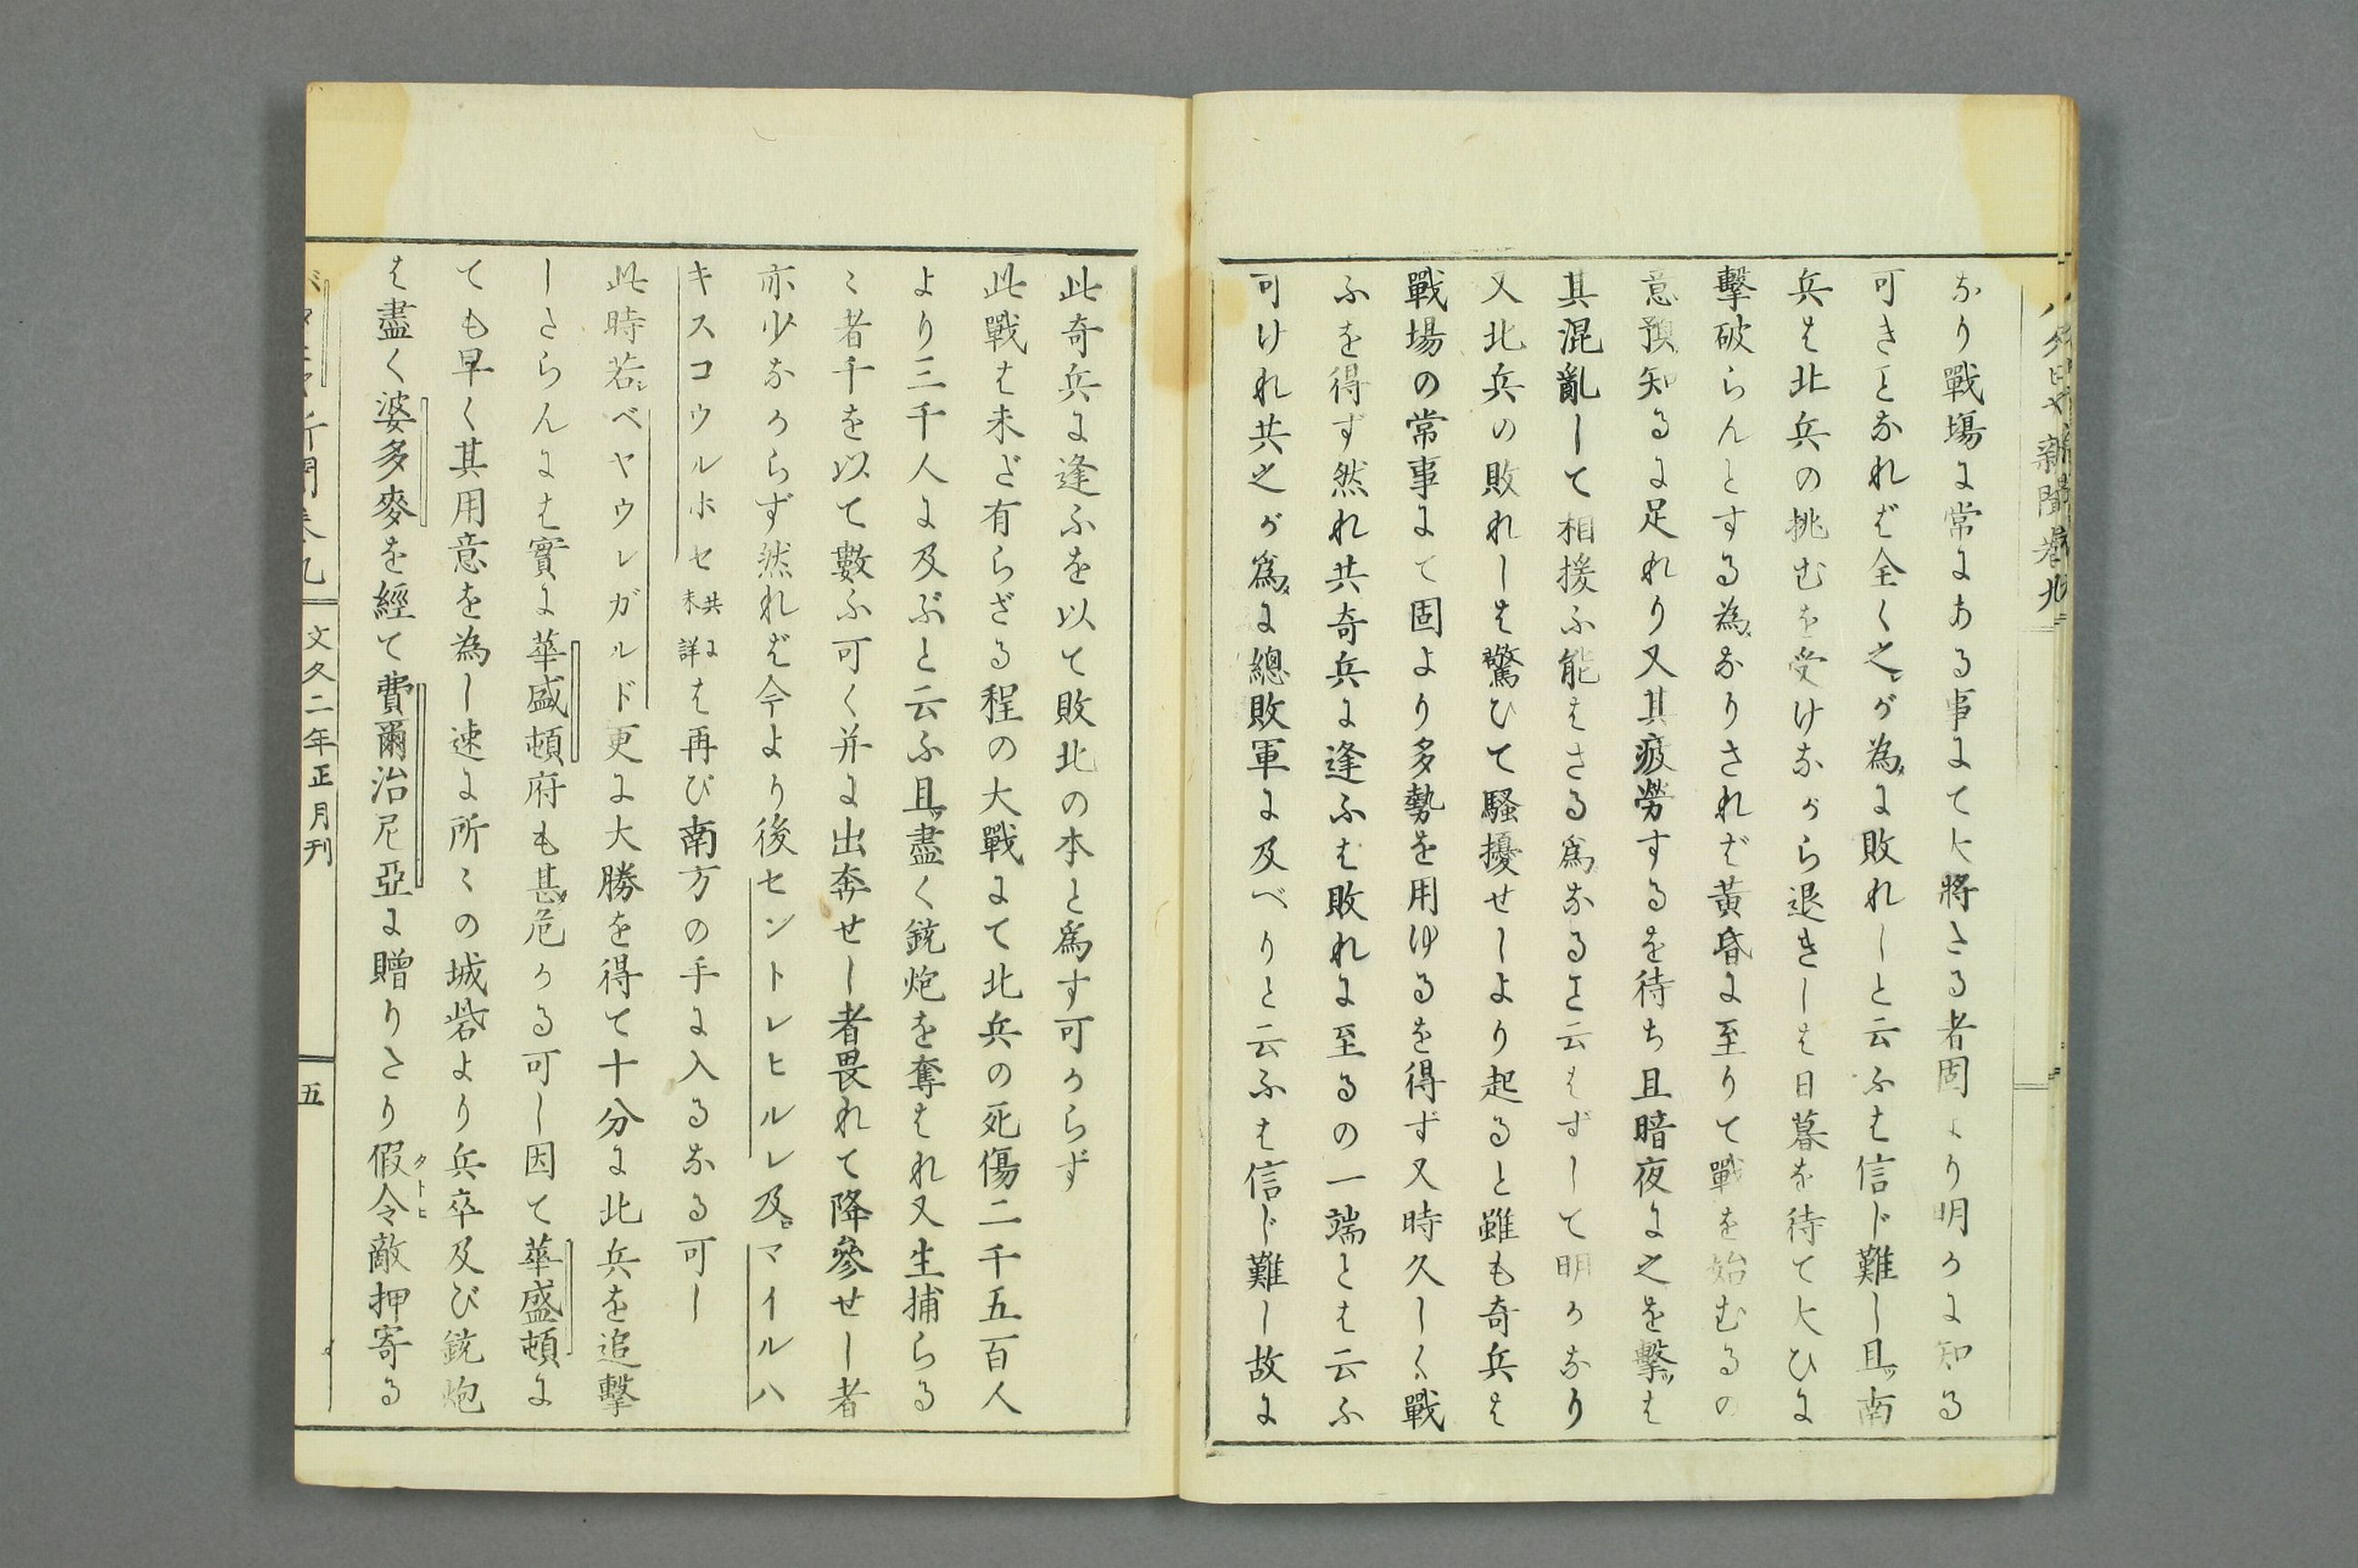 なり戰塲に常にある事にて大將たる者固より明かに知る
可きことなれば全く之が為に敗れしと云ふは信じ難し且ッ南
兵は北兵の挑むを受けながら退きしは日暮を待て大ひに
擊破らんとする為なりされば黃昏に至りて戰を始むるの
意預知るに足れり又其疲勞するを待ち且暗夜に之を擊ッは
其混亂して相援ふ能はさる爲なること云はずして明かなり
又北兵の敗れしは驚ひて騷擾せしより起ると雖も奇兵は
戰場の常事にて固より多勢を用ゆるを得ず又時久しく戰
ふを得ず然れ共奇兵に逢ふは敗れに至るの一端とは云ふ
可けれ共之が爲メに總敗軍に及べりと云ふは信じ難し故に
此奇兵に逢ふを以て敗北の本と爲す可からず
此戰は未ざ有らざる程の大戰にて北兵の死傷二千五百人
より三千人に及ぶと云ふ且ッ盡く銃炮を奪はれ又生捕らる
〻者千を以て數ふ可く并に出奔せし者畏れて降參せし者
亦少なからず然れば今より後セントレヒルレ及ヒマイルハ
キスコウルホセ共に未詳は再び南方の手に入るなる可し
此時若シベヤウレガルド更に大勝を得て十分に北兵を追擊
したらんには實に華盛頓府も甚ダ危かる可し因て華盛頓に
ても早く其用意を為し速に所〻の城砦より兵卒及び銃炮
は盡く婆多麥を經て費爾治尼亞に贈りたり假令タトヒ敵押寄る
文久二年正月刊
五